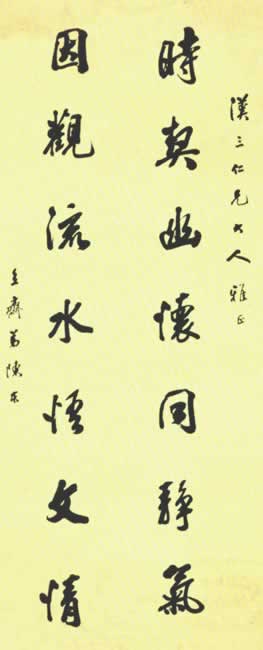 漢三仁兄大人雅正
時契幽懷同靜氣
因觀流水悟文情
齋弟陳東